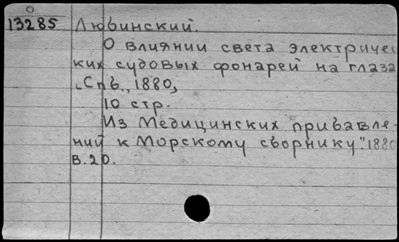 13285 Любинский.
О влиянии света электричес
ких судовых фонарей на глаза
„Спб., 1880,
10 стр.
Из Медицинских прибавле-
ний к Морскому сборнику". 1880
в. 20.